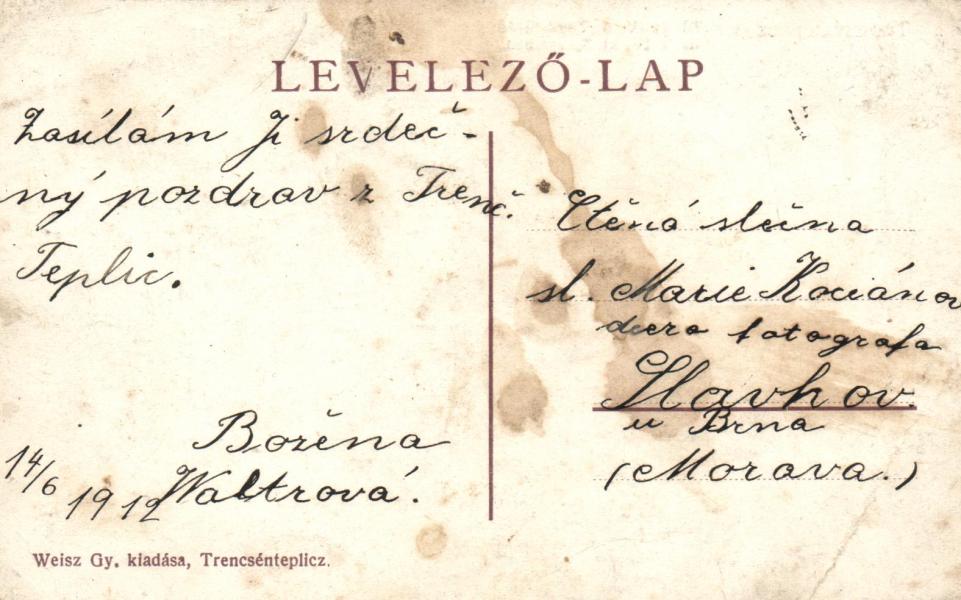 LEVELEZŐ-LAP
Zasílám Ji srdeč-
ný pozdrav z Trenč.
Teplic.
Božena
Waltrová.
14/6 1912
Ctěná slečna
sl. Marie Kociánov
dcera fotografa
Slavkov
u Brna
(Morava.)
Weisz Gy. kiadása, Trencsénteplicz.